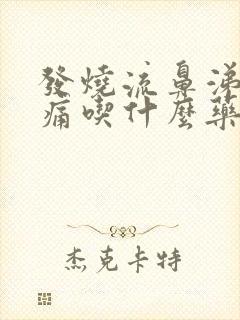 發燒流鼻涕
痛喫什麼藥
杰克卡特